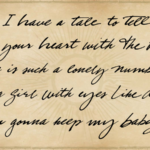 I have a tale to tell
your heart with the
is such a lonely num
girl with eyes like
gonna keep my baby